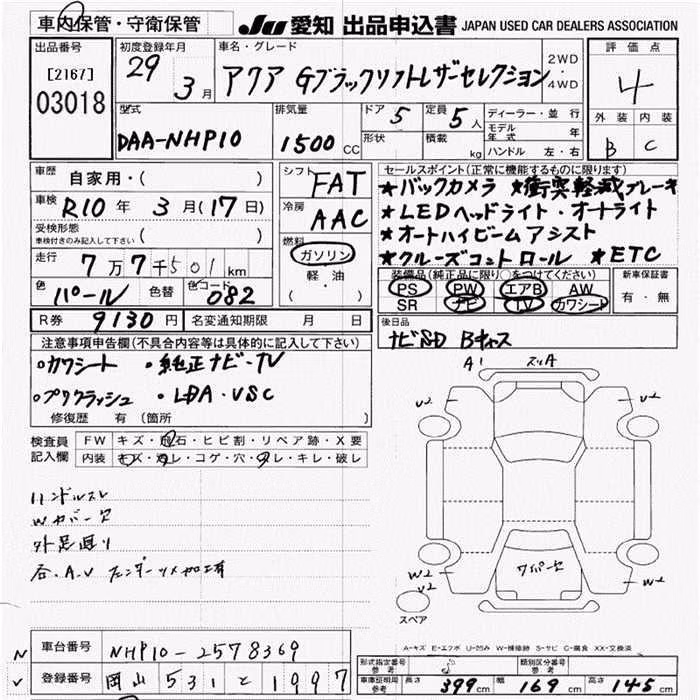 車内保管・守衛保管 JU 愛知 出品申込書 JAPAN USED CAR DEALERS ASSOCIATION
出品番号 初度登録年月 車名・グレード 2WD・4WD 評価点
[2167] 29年 3月 アクア Gブラックソフトレザーセレクション 4
03018
型式 排気量 ドア 5 定員 5人 ディーラー・並行 外装 内装
DAA-NHP10 1500 CC 形状 積載 kg モデル年式 年 B C
ハンドル 左・右
車歴 自家用・( ) シフト FAT セールスポイント(正常に機能するものに限ります)
車検 R10年 3月(17日) 冷房 AAC ★バックカメラ ★衝突軽減ブレーキ
★LEDヘッドライト・オートライト
受検形態 車検付きのみ記入して下さい ( ) 燃料 ★オートハイビームアシスト
走行 7万7千501km ガソリン ★クルーズコントロール ★ETC
軽・油
( )
色 パール 色替 色コード 082 装備品(純正品に限り○をつけてください) 新車保証書
PS PW エアB AW 有・無
SR ナビ TV カワシート
R券 9130円 名変通知期限 月 日 後日品
ナビSD Bキャス
注意事項申告欄(不具合内容等は具体的に記入して下さい)
・カワシート ・純正ナビ・TV
・プリクラッシュ ・LDA・VSC
修復歴 有 (箇所
A1 スリA
U2 U2
検査員記入欄 FW キズ・飛石・ヒビ割・リペア跡・X要
内装 キズ・汚レ・コゲ・穴・スレ・キレ・破レ
ハンドルスレ
Wカバーセ
外足廻り
右.A.U フェンダーツメ加工有
ワイパーセ
W2 U2 W2
スペア
A-キズ E-エクボ U-凹み W-補修跡 S-サビ C-腐食 XX-交換済
N 車台番号 NHP10-2578369 形式指定番号 参考 類別区分番号 参考
✓ 登録番号 岡山 531 と 1997 車庫証明用 参考 長さ 399cm 幅 169cm 高さ 145cm